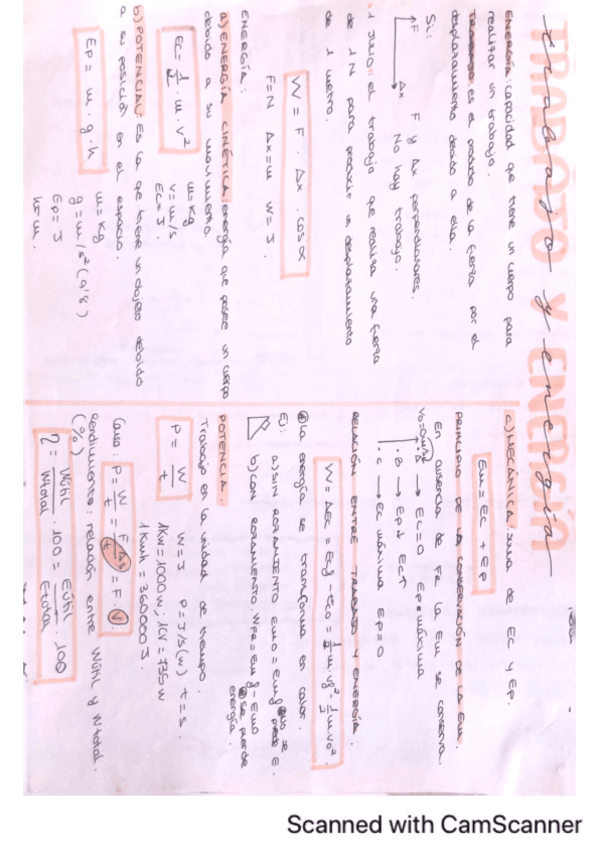 TRABAJO Y ENERGÍA
trabajo y energía
ENERGÍA: capacidad que tiene un cuerpo para
realizar un trabajo.
TRABAJO: es el producto de la fuerza por el
desplazamiento debido a ella.
Si:
F
Δx
F y Δx perpendiculares.
No hay trabajo.
"1 Julio": el trabajo que realiza una fuerza
de 1N para producir un desplazamiento
de 1 metro.
W = F · Δx · cosα
F=N Δx=m W=J.
ENERGÍA:
a) ENERGÍA CINÉTICA: energía que posee un cuerpo
debido a su movimiento.
Ec = 1/2 · m · v²
m=kg
v=m/s
Ec=J.
b) POTENCIAL: Es la que tiene un objeto debido
a su posición en el espacio.
Ep = m · g · h
m=kg
g=m/s² (9'8)
Ep=J
h=m.
c) MECÁNICA: suma de Ec y Ep.
Em = Ec + Ep
PRINCIPIO DE LA CONSERVACIÓN DE LA Em.
En ausencia de FR la Em se conserva.
Vo=0m/s
·A → Ec=0 Ep=máxima
·B → Ep↓ Ec↑
·C → Ec máxima Ep=0
RELACIÓN ENTRE TRABAJO Y ENERGÍA
W = ΔEc = Ecf - Eco = 1/2 m·vf² - 1/2 m·vo².
La energía se transforma en calor.
Ej: a) SIN ROZAMIENTO Emo = Emf No se pierde E.
b) CON ROZAMIENTO: WFR = Emf - Emo
se pierde energía.
POTENCIA:
Trabajo en la unidad de tiempo.
P = W/t
W=J P=J/s(w) t=s.
1kw=1000w; 1CV=735w
1kwh=360000J.
P = W/t = F·Δs/t = F·v.
Rendimiento: relación entre Wútil y Wtotal.
(%)
η = Wútil/Wtotal · 100 = Eútil/Etotal · 100
Scanned with CamScanner